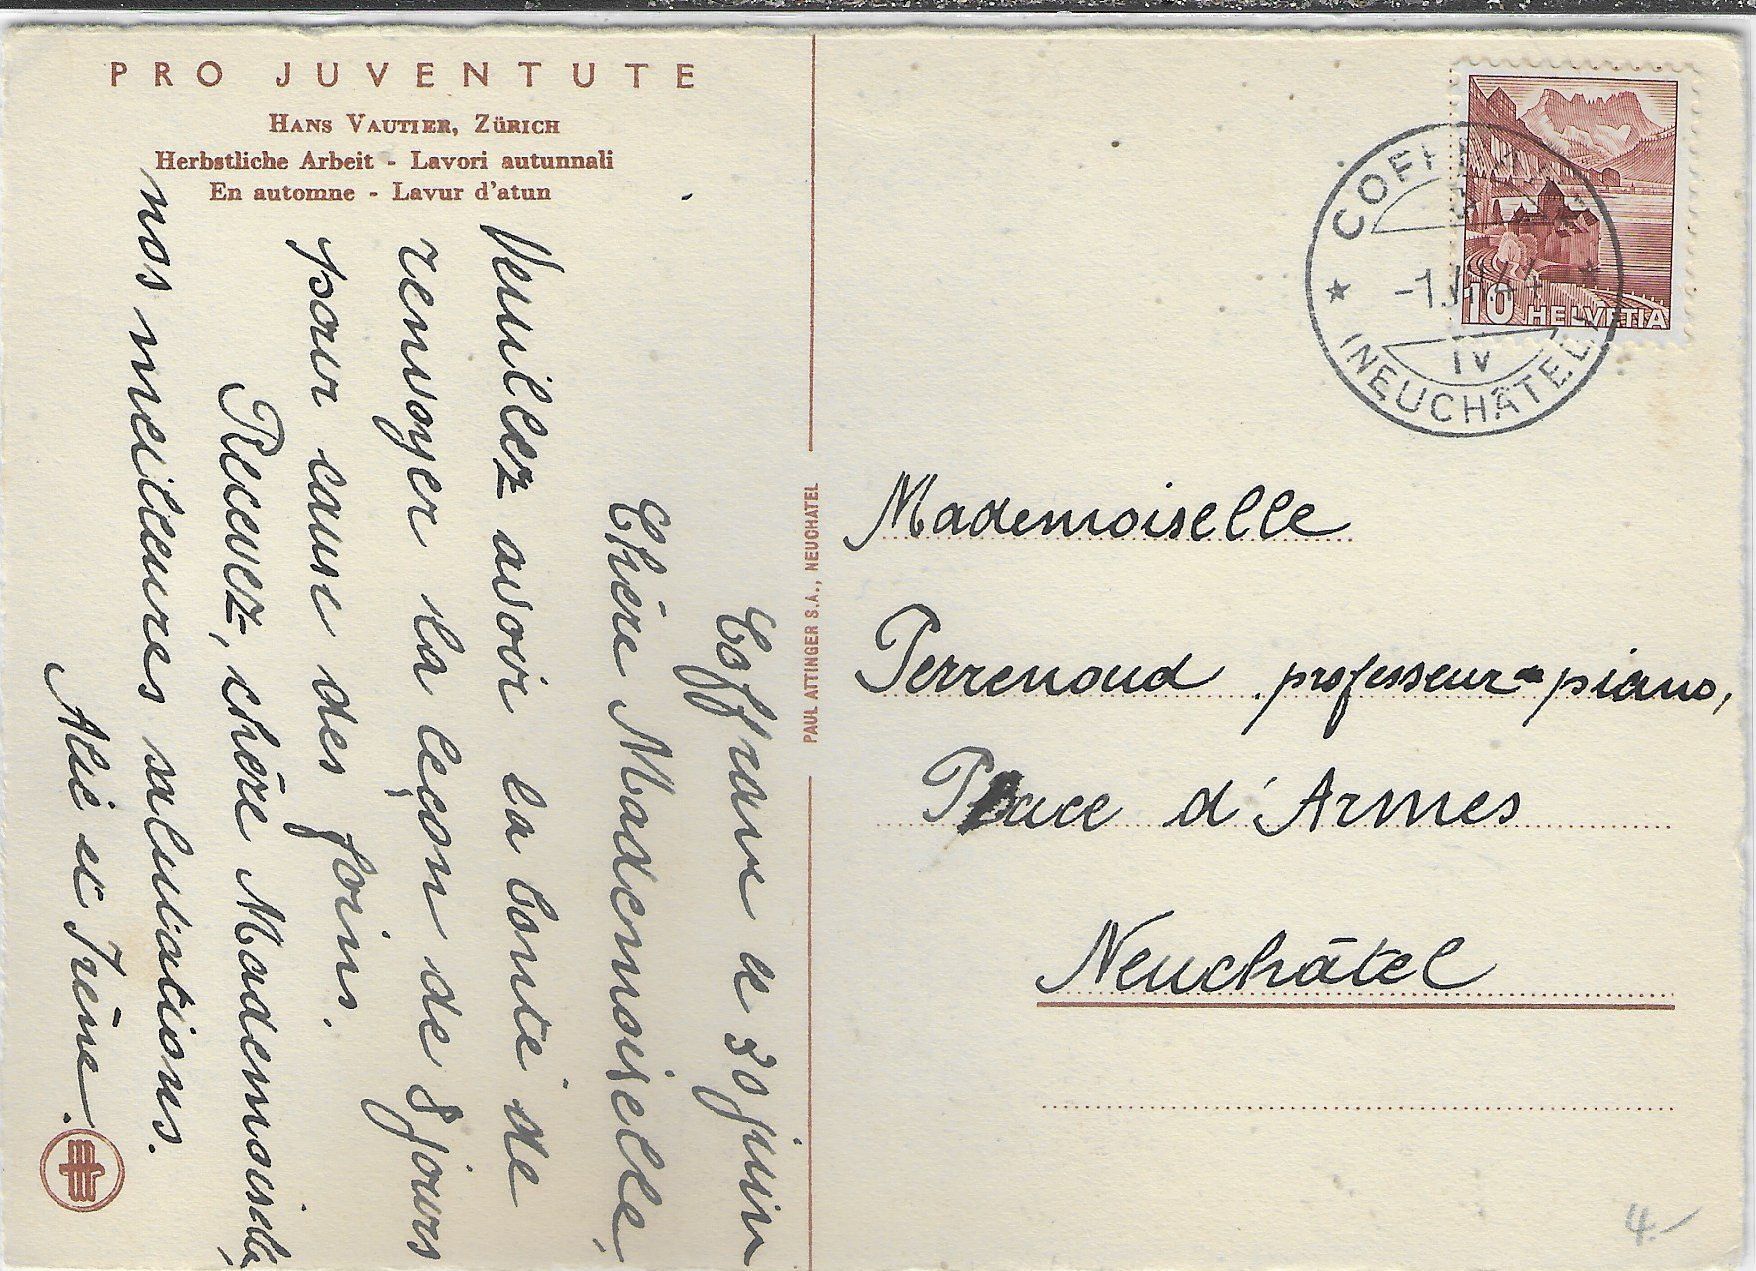 PRO JUVENTUTE
HANS VAUTIER, ZÜRICH
Herbstliche Arbeit - Lavori autunnali
En automne - Lavur d'atun
Coffrane le 30 juin
Chère Mademoiselle,
Veuillez avoir la bonté de
renvoyer la leçon de 8 jours
pour cause des foins.
Recevez, chère Mademoiselle,
nos meilleures salutations.
et Irène.
PAUL ATTINGER S.A., NEUCHATEL
10 HELVETIA
-1.
IV
(NEUCHÂTEL)
Mademoiselle
Perrenoud professeur de piano,
Place d'Armes
Neuchâtel
4.-